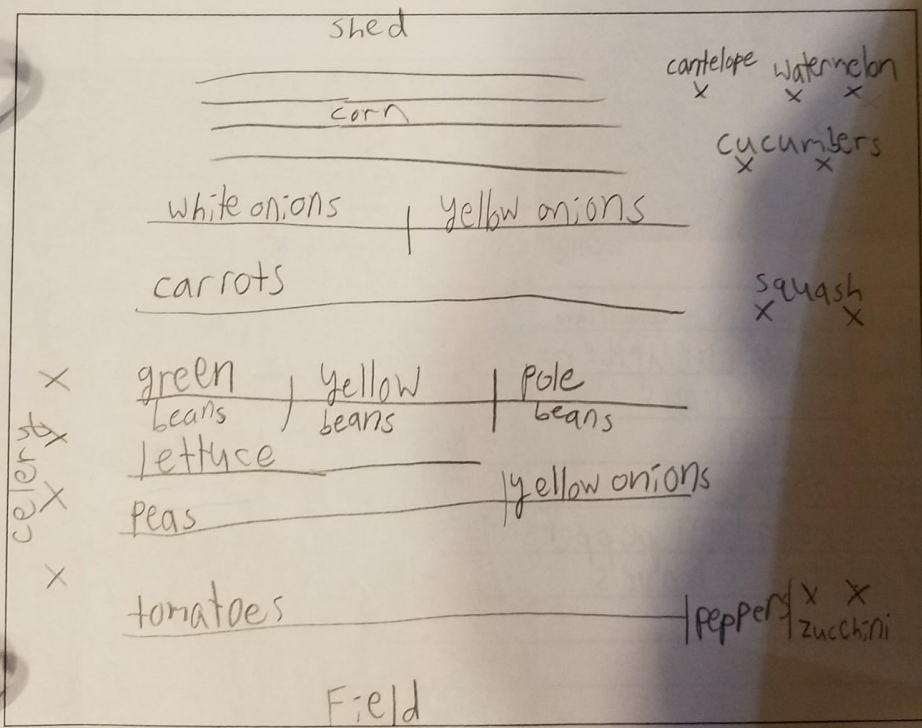 shed
cantelope watermelon
x x x
corn
cucumbers
x x
white onions yellow onions
carrots
squash
x x
x green yellow pole
beans beans beans
x
celery
lettuce
x yellow onions
peas
x
tomatoes peppers x x
zucchini
Field